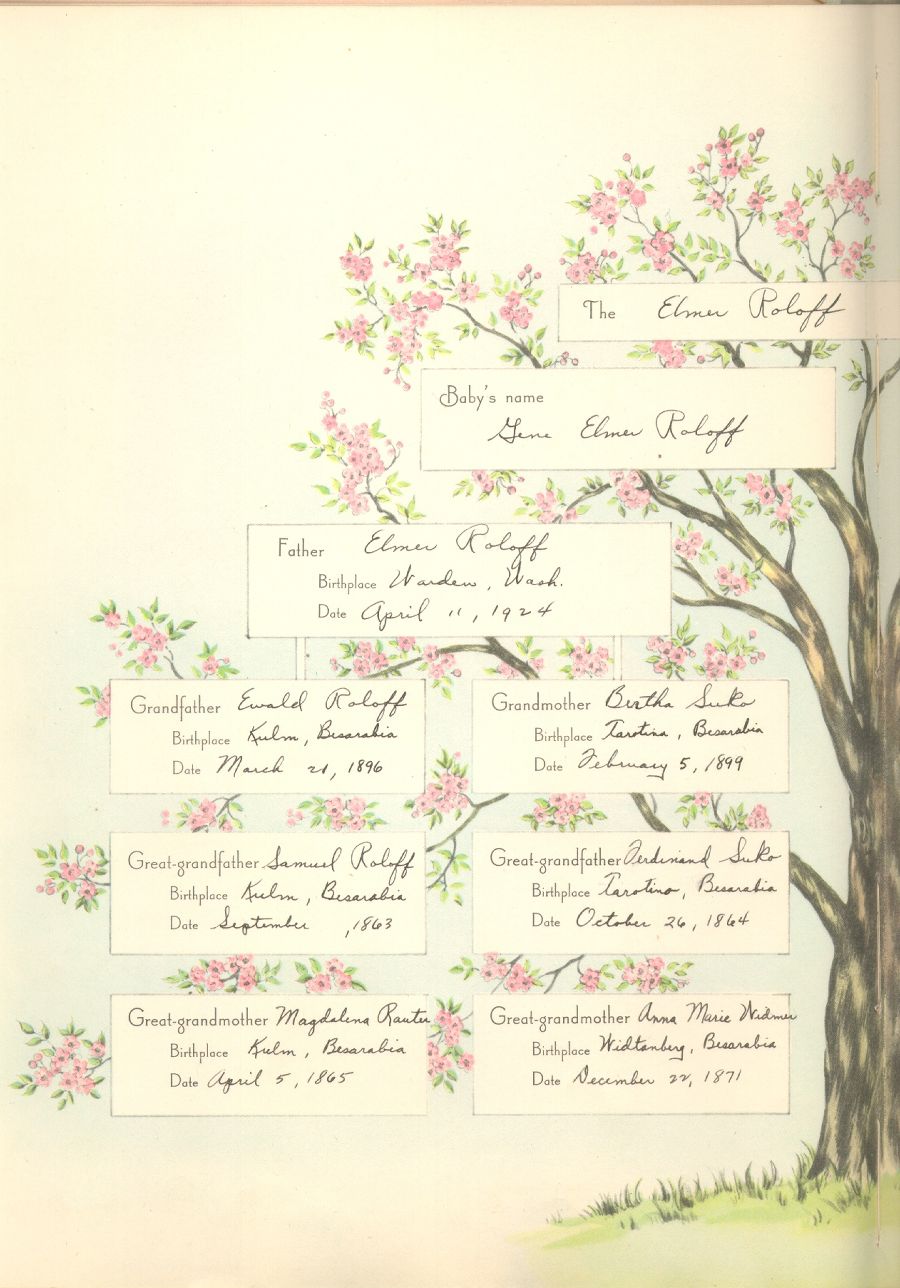 The Elmer Roloff
Baby's name
Gene Elmer Roloff
Father Elmer Roloff
Birthplace Warden, Wash.
Date April 11, 1924
Grandfather Ewald Roloff
Birthplace Kulm, Besarabia
Date March 21, 1896
Grandmother Bertha Suko
Birthplace Tarotina, Besarabia
Date February 5, 1899
Great-grandfather Samuel Roloff
Birthplace Kulm, Besarabia
Date September ,1863
Great-grandfather Ferdinand Suko
Birthplace Tarotino, Besarabia
Date October 26, 1864
Great-grandmother Magdalena Rauter
Birthplace Kulm, Besarabia
Date April 5, 1865
Great-grandmother Anna Marie Widmer
Birthplace Widtanberg, Besarabia
Date December 22, 1871